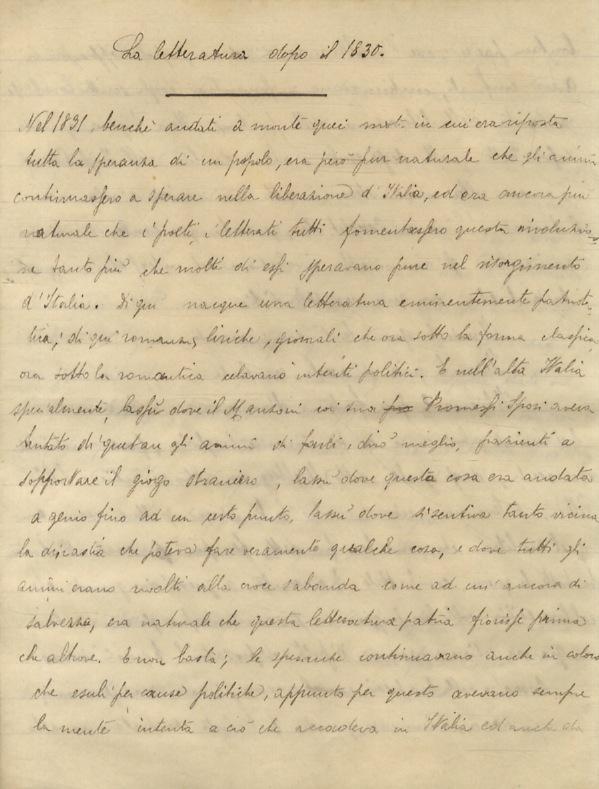 La letteratura dopo il 1830.
Nel 1831, benchè andati a monte quei moti in cui era riposta
tutta la speranza di un popolo, era però pur naturale che gli animi
continuassero a sperare nella liberazione d'Italia, ed era ancora più
naturale che i poeti, i letterati tutti fomentassero questa rivoluzio-
ne tanto più che molti di essi speravano pure nel risorgimento
d'Italia. Di qui nacque una letteratura eminentemente patriot-
tica; di qui romanzi, liriche, giornali che ora sotto la forma classica
ora sotto la romantica celavano intenti politici. E nell'alta Italia
specialmente, lassù dove il Manzoni coi suoi Promessi Sposi aveva
tentato di quetare gli animi di farli, dirò meglio, pazienti a
sopportare il giogo straniero, lassù dove questa cosa era andata
a genio fino ad un certo punto, lassù dove si sentiva tanto vicina
la dinastia che poteva fare veramente qualche cosa, e dove tutti gli
animi erano rivolti alla croce sabauda come ad un'ancora di
salvezza, era naturale che questa letteratura patria fiorisse prima
che altrove. E non basta; le speranze continuavano anche in coloro
che esuli per cause politiche, appunto per questo avevano sempre
la mente intenta a ciò che accadeva in Italia ed anche da